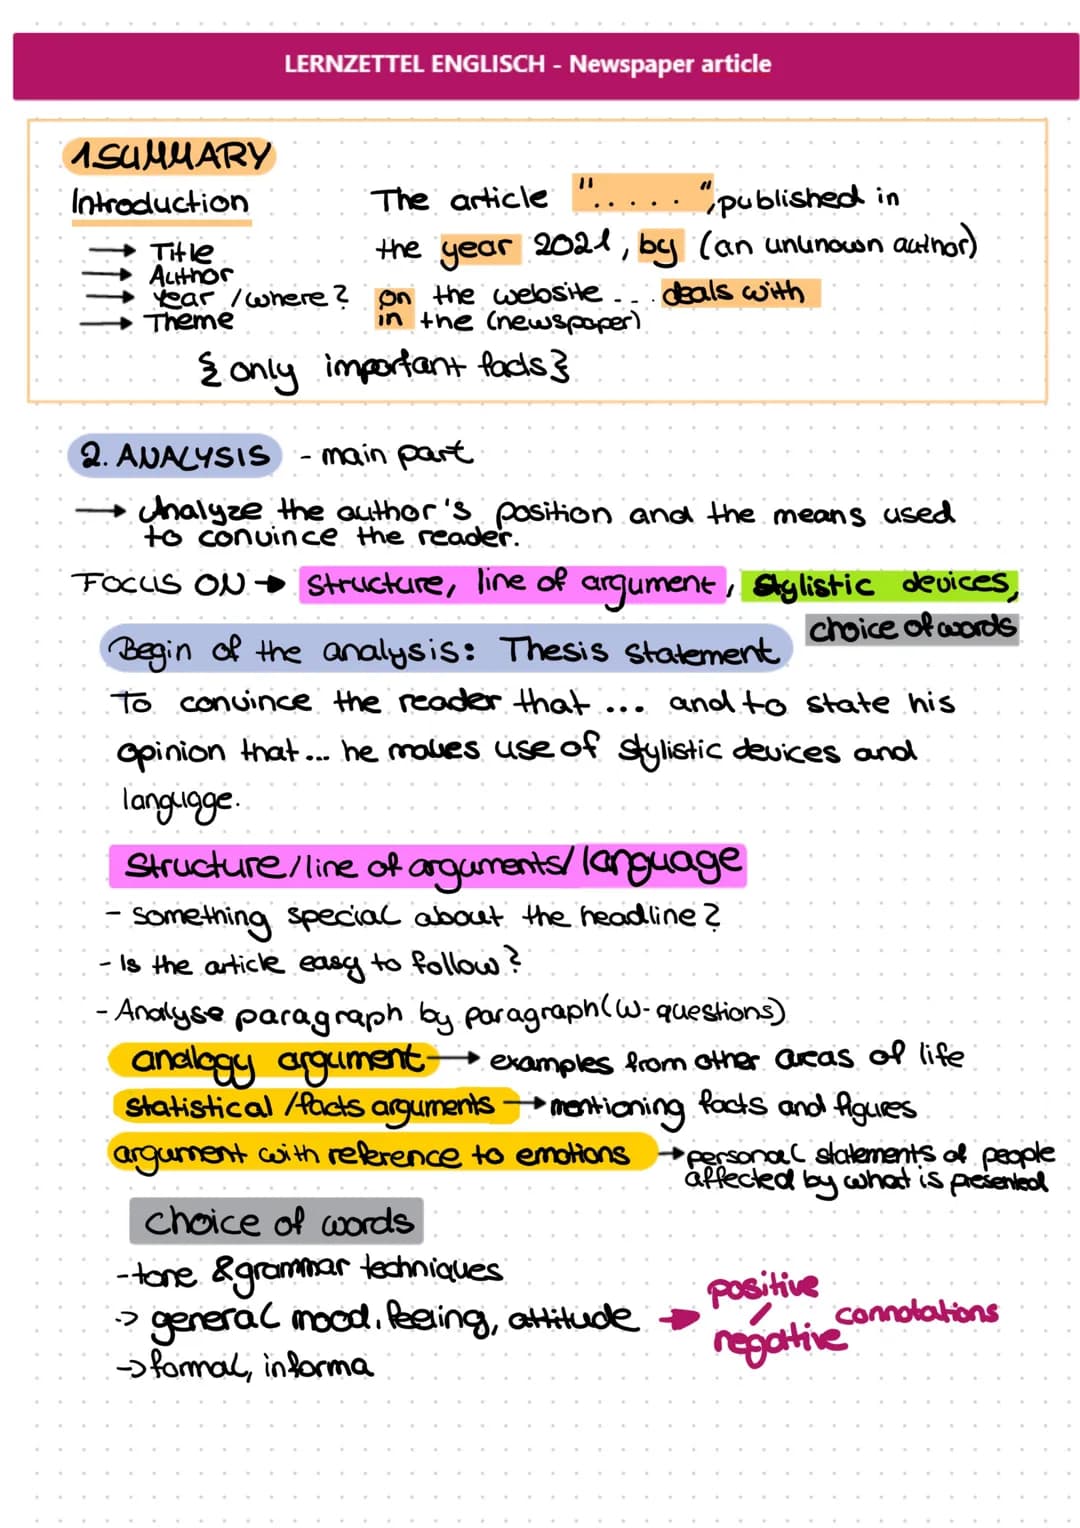 LERNZETTEL ENGLISCH - Newspaper article
1 SUMMARY
Introduction
The article ".....", published in
the year 2021, by (an ununown author)
→ Title
→ Author
→ Year / where?
→ Theme
on the website ... deals with
in the (newspaper)
{ only important facts }
2. ANALYSIS - main part
→ Analyze the author's position and the means used
to convince the reader.
FOCUS ON → Structure, line of argument, Stylistic devices,
choice of words
Begin of the analysis: Thesis Statement
To convince the reader that ... and to state his
opinion that... he makes use of stylistic devices and
langugge.
Structure/line of arguments/language
- something special about the headline?
- Is the article easy to follow?
- Analyse paragraph by paragraph (W-questions)
analogy argument → examples from other areas of life
statistical /facts arguments → mentioning facts and figures
argument with reference to emotions → personal statements of people
affected by what is presented
choice of words
- tone & grammar techniques
-> general mood, feeling, attitude → positive / negative connotations
-> formal, informa